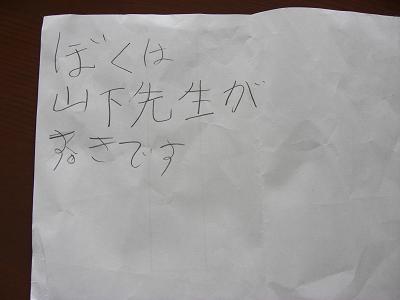 ぼくは
山下先生が
すきです